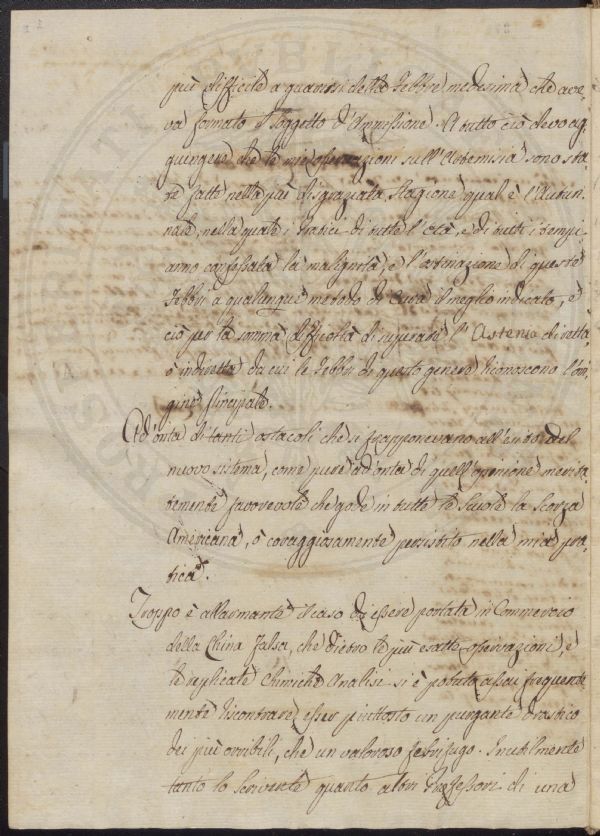 più difficile a guarirsi della Febbre medesima che ave-
va formato il soggetto d'Apprensione. A tutto ciò devo ag-
giungere che le mie osservazioni sull'Artemisia sono sta-
te fatte nella più disgraziata stagione qual è l'Autun-
nale, nella quale i Pratici di tutte l'età, e di tutti i tempi
anno confessata la malignità, e l'ostinazione di queste
Febbri a qualunque metodo di Cura il meglio indicato, e
ciò per la somma difficoltà di superare l'Astenia diretta
o indiretta da cui le Febbri di questo genere riconoscono l'ori-
gine principale.
Ad onta di tanti ostacoli che si frapponevano all'esito del
nuovo sistema, come pure ad onta di quell'opinione merita-
temente favorevole che gode in tutte le Scuole la Scorza
Americana, ò coraggiosamente persistito nella mia pra-
tica.
Troppo è allarmante il caso di essere portata in Commercio
della China falsa, che dietro le più esatte osservazioni, e
le replicate Chimiche Analisi si è potuta assai frequente-
mente riscontrare esser piuttosto un purgante drastico
dei più orribili, che un valoroso febrifugo. Inutilmente
tanto lo Scrivente quanto altri Professori di una